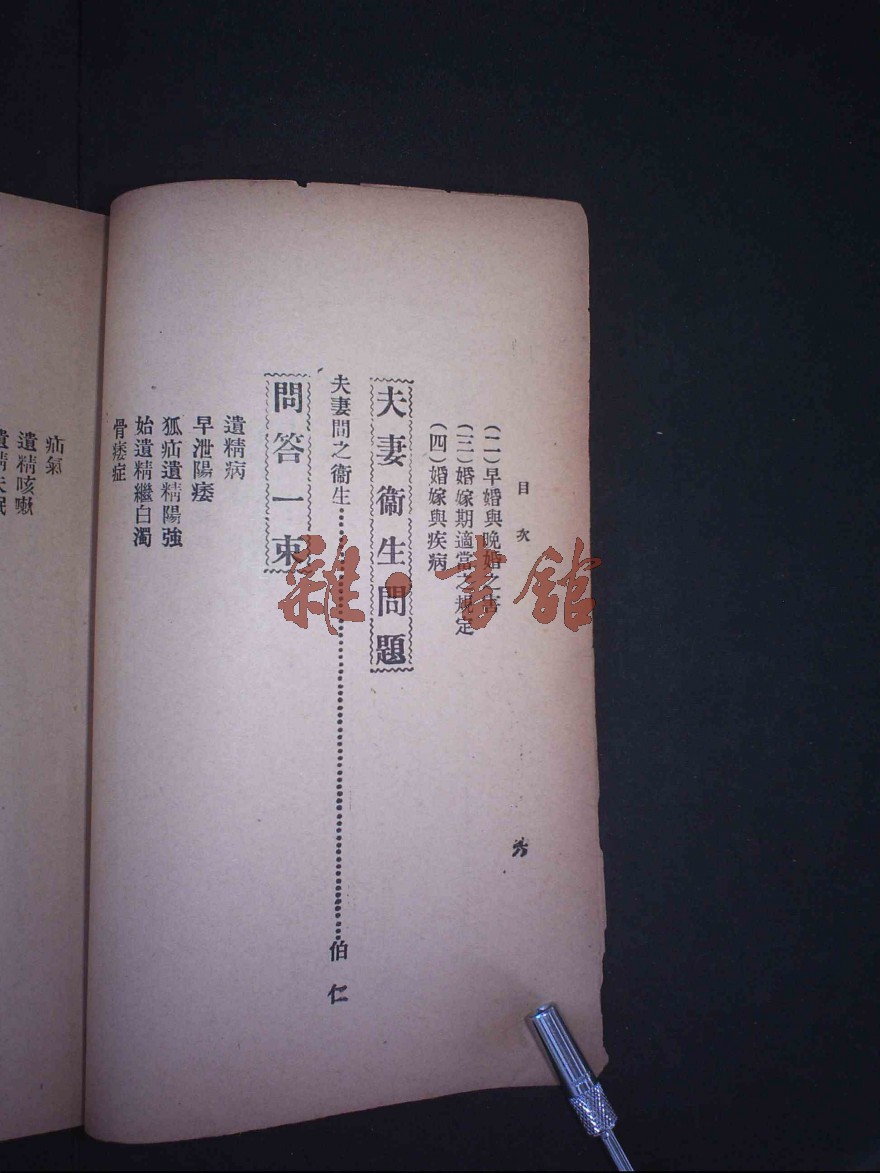 目次
(二)早婚與晚婚之害
(三)婚嫁期適當之規定
(四)婚嫁與疾病
夫妻衞生問題
夫妻間之衞生……伯仁
問答一束
遺精病
早泄陽痿
狐疝遺精陽強
始遺精繼白濁
骨痿症
疝氣
遺精咳嗽
雜·書館